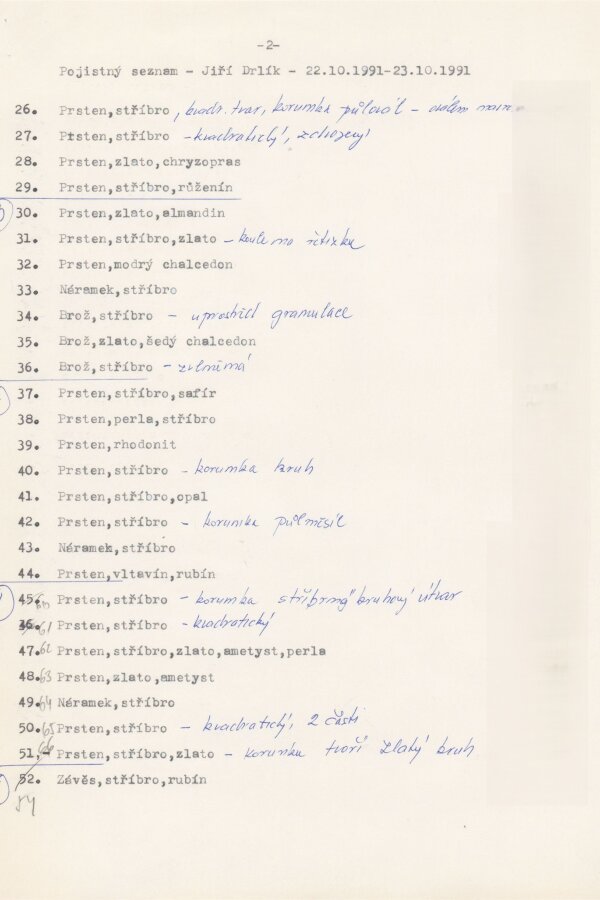 -2-
Pojistný seznam - Jiří Drlík - 22.10.1991-23.10.1991
26. Prsten,stříbro, kvadr. tvar, korunka půlovál -
27. Prsten,stříbro - kvadratický,
28. Prsten,zlato,chryzopras
29. Prsten,stříbro,růženín
30. Prsten,zlato,almandin
31. Prsten,stříbro,zlato - koule na řetízku
32. Prsten,modrý chalcedon
33. Náramek,stříbro
34. Brož,stříbro - uprostřed granulace
35. Brož,zlato,šedý chalcedon
36. Brož,stříbro - zvlněná
37. Prsten,stříbro,safír
38. Prsten,perla,stříbro
39. Prsten,rhodonit
40. Prsten,stříbro - korunka kruh
41. Prsten,stříbro,opal
42. Prsten,stříbro - korunka půlměsíc
43. Náramek,stříbro
44. Prsten,vltavín,rubín
45. 60 Prsten,stříbro - korunka stříbrný kruhový útvar
46. 61 Prsten,stříbro - kvadratický
47. 62 Prsten,stříbro,zlato,ametyst,perla
48. 63 Prsten,zlato,ametyst
49. 64 Náramek,stříbro
50. 65 Prsten,stříbro - kvadratický, 2 části
51. 66 Prsten,stříbro,zlato - korunku tvoří zlatý kruh
52. Závěs,stříbro,rubín
54